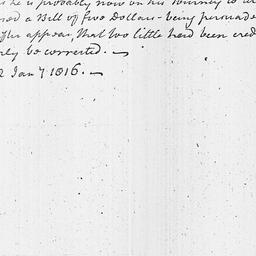 he is probably now on his Journey to
a Bill of five Dollars - being persuade
appear, that too little had been cred
be corrected. —
Jan 7 1816. —